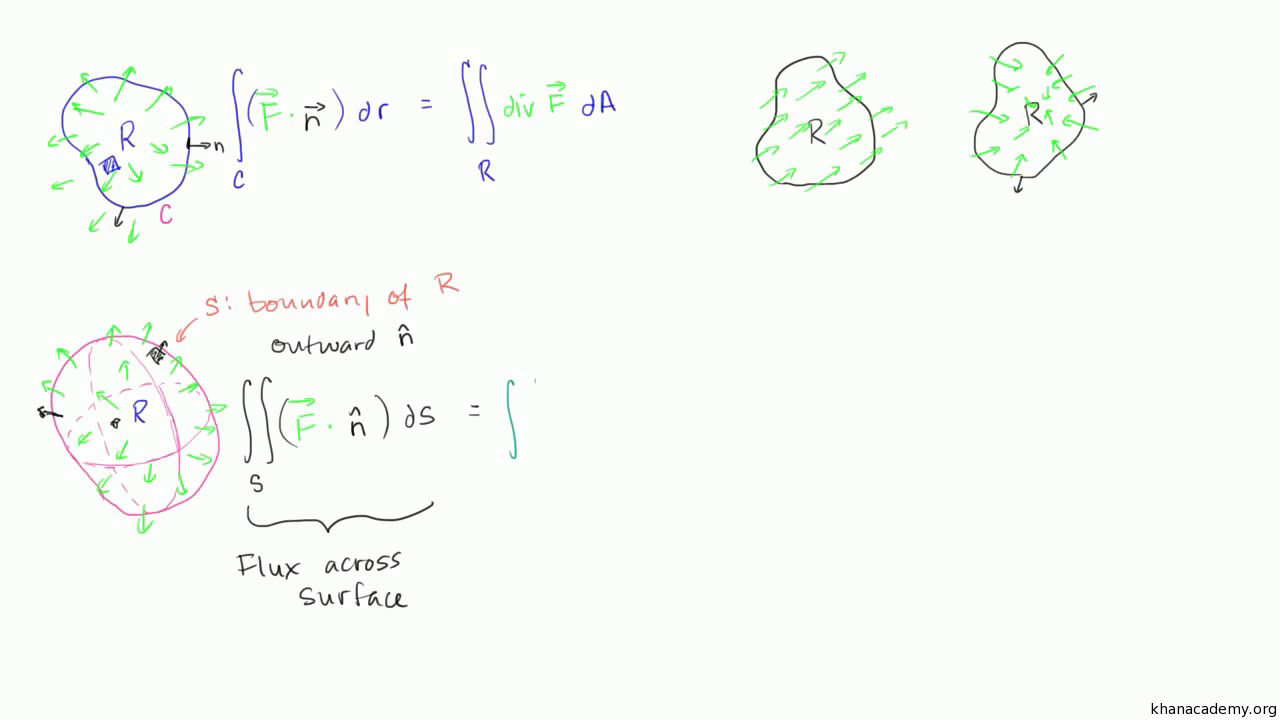 R
n
C
∫_C (F⃗ · n⃗) dr = ∬_R div F⃗ dA
R
R
S: boundary of R
outward n̂
R
∬_S (F⃗ · n̂) dS = ∫
Flux across
surface
khanacademy.org